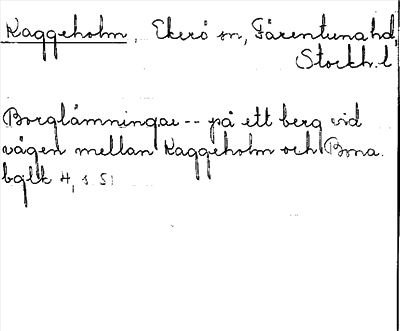 Kaggeholm, Ekerö sn, Färentuna hd,
Stockh. l
Borglämningar -- på ett berg vid
vägen mellan Kaggeholm och Bona.
bglk H, s. 51